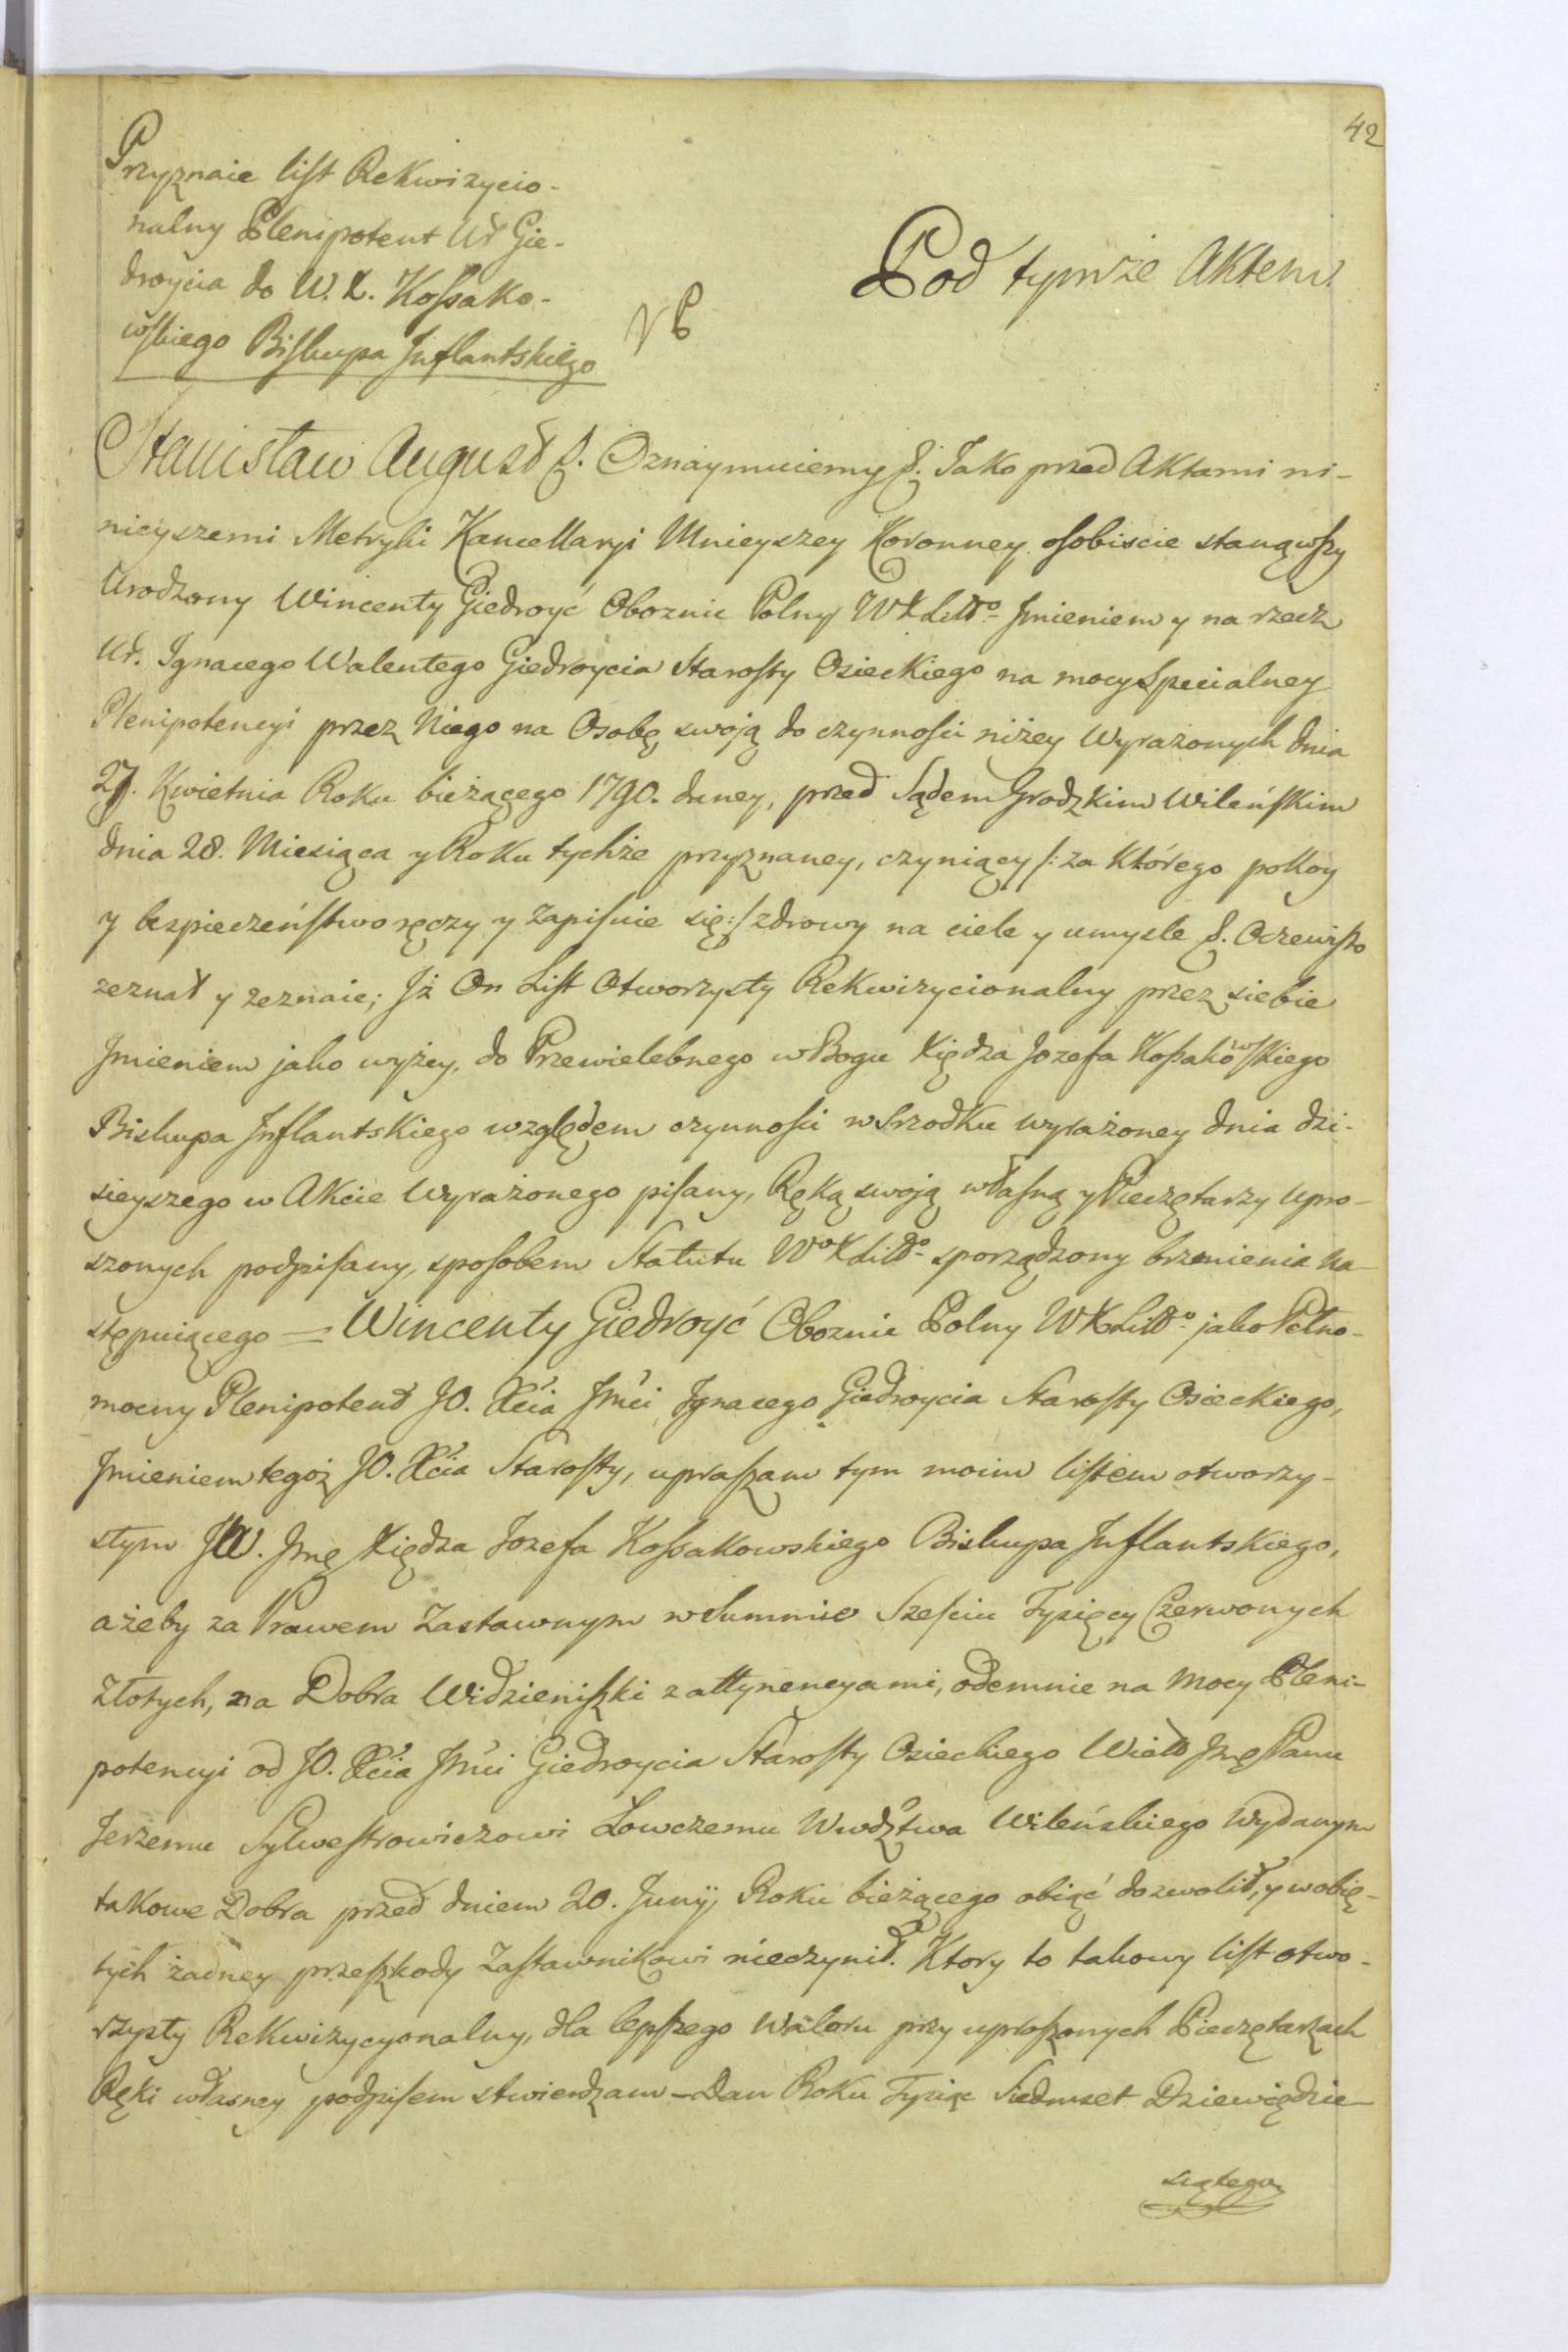 42
Przyznaie list Rekwizycio-
nalny Plenipotent Ur Gie-
droycia do W. X. Kossako-
wskiego Biskupa Inflantskiego
Pod tymże Aktem
Stanisław August &. Oznaymuiemy &. Jako przed Aktami ni-
nieyszemi Metryki Kancellaryi Mnieyszey Koronney osobiscie stanąwszy
Urodzony Wincenty Giedroyć Oboznie Polny WXLittº Imieniem y na rzecz
Ur. Ignacego Walentego Giedroycia Starosty Osieckiego na mocy Specialney
Plenipotencyi przez Niego na Osobę swoją do czynnosci niżey Wyrażonych dnia
27. Kwietnia Roku bieżącego 1790. daney, przed Sądem Grodzkim Wileńskim
dnia 28. Miesiąca y Roku tychże przyznaney, czyniący /: za Którego pokoy
y bespieczeństwo ręczy y zapisuie się :/ zdrowy na ciele y umysle &. Oczewisto
zeznał y zeznaie; Iż On List Otworzysty Rekwizycionalny przez siebie
Imieniem jako wyżey, do Przewielebnego w Bogu Xiędza Jozefa Kossakowskiego
Biskupa Inflantskiego względem czynnosci w Srzodku wyrażoney dnia dzi-
sieyszego w Akcie Wyrażonego pisany, Ręką swoją własną y Pieczętarzy upro-
szonych podpisany, sposobem Statutu WºXLittº sporządzony brzmienia na-
stępuiącego = Wincenty Giedroyć Oboznie Polny WXLittº jako Pełno-
mocny Plenipotent JO. Xcia Jmci Ignacego Giedroycia Starosty Osieckiego,
Imieniem tegoż JO. Xcia Starosty, upraszam tym moim listem otworzy-
stym JW. Jmę Xiędza Jozefa Kossakowskiego Biskupa Inflantskiego,
ażeby za Prawem Zastawnym w Summie Szesciu Tysięcy Czerwonych
Złotych, na Dobra Widzieniszki z attynencyami, odemnie na Mocy Pleni-
potencyi od JO. Xcia Jmci Giedroycia Starosty Osieckiego Jmę Panu
Jerzemu Sylwestrowiczowi Łowczemu Wwdztwa Wileńskiego Wydanym
takowe Dobra przed dniem 20. Junij Roku bieżącego obiąć dozwolił, y w obię-
tych żadney przeszkody Zastawnikowi nieczynił. Ktory to takowy list otwo-
rzysty Rekwizycyonalny, dla lepszego Waloru przy uproszonych Pieczętarzach
Ręki własney podpisem stwierdzam – Dan Roku Tysiąc Siedmset Dziewiędzie-
siątego